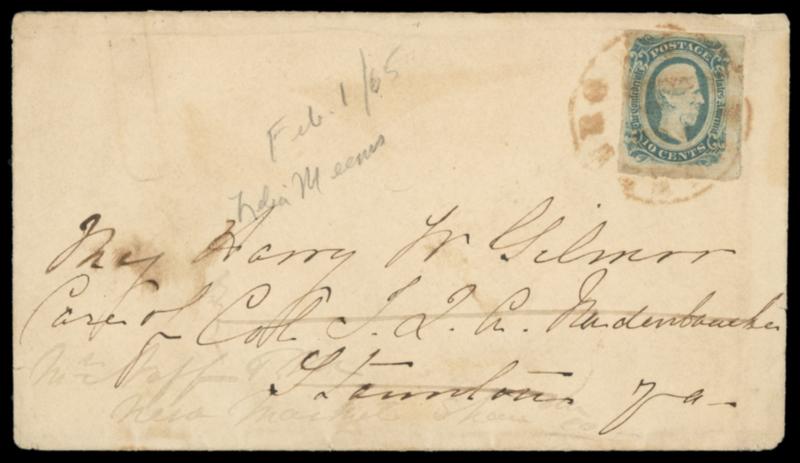 Feb. 1/65
Lydia Meems
POSTAGE
The Confederate States America
10 CENTS
Maj Harry W Gilmor
Care of Coll J. Q. A. Nadenbousch
Staunton Va
New Market Shen